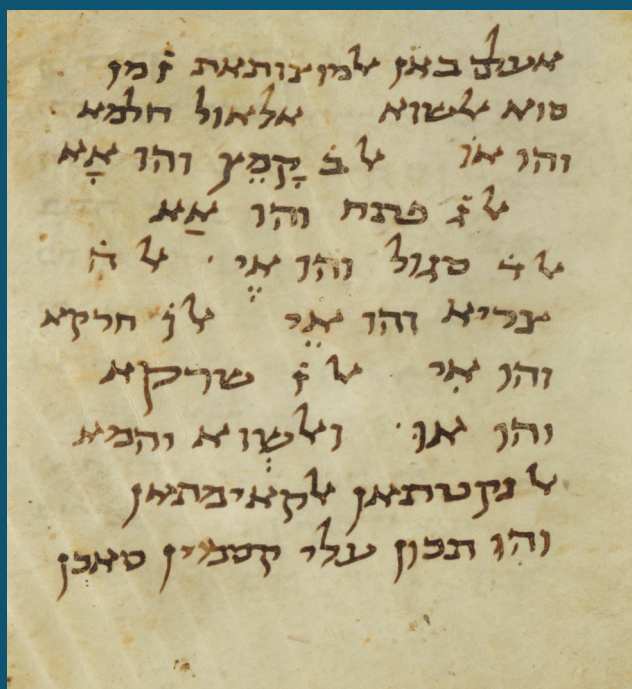 אעלם באן אלמצותאת ז̇ מן
סוא אלשוא אלאול חלמא
והו אֹו אלב̇ קָמֶץ והו אָא
אלג̇ פתח והו אַא
אלד̇ סגול והו אֶי אלה̇
צריא והו אֵי אלו̇ חרקא
והו אִי אלז̇ שרקא
והו אוּ ואלשְוא והמא
אלנקטתאן אלקאימתאן
והו תכון עלי קסמין סאכן